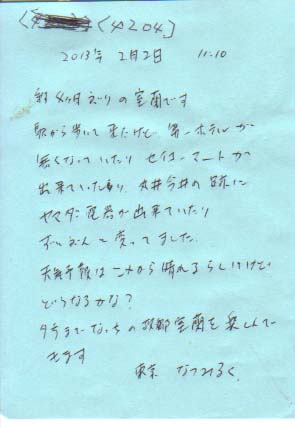 <4204>
2013年 2月2日 11:10
約4ヶ月ぶりの室蘭です
駅から歩いて来たけど 第一ホテルが
無くなっていたり セイコーマートが
出来ていたり 丸井今井の跡に
ヤマダ電器が出来ていたり
ずいぶんと変ってました。
天気予報はこれから晴れるらしいけど
どうなるかな?
夕方までなっちの故郷室蘭を楽しんで
きます
東京 なつみるく